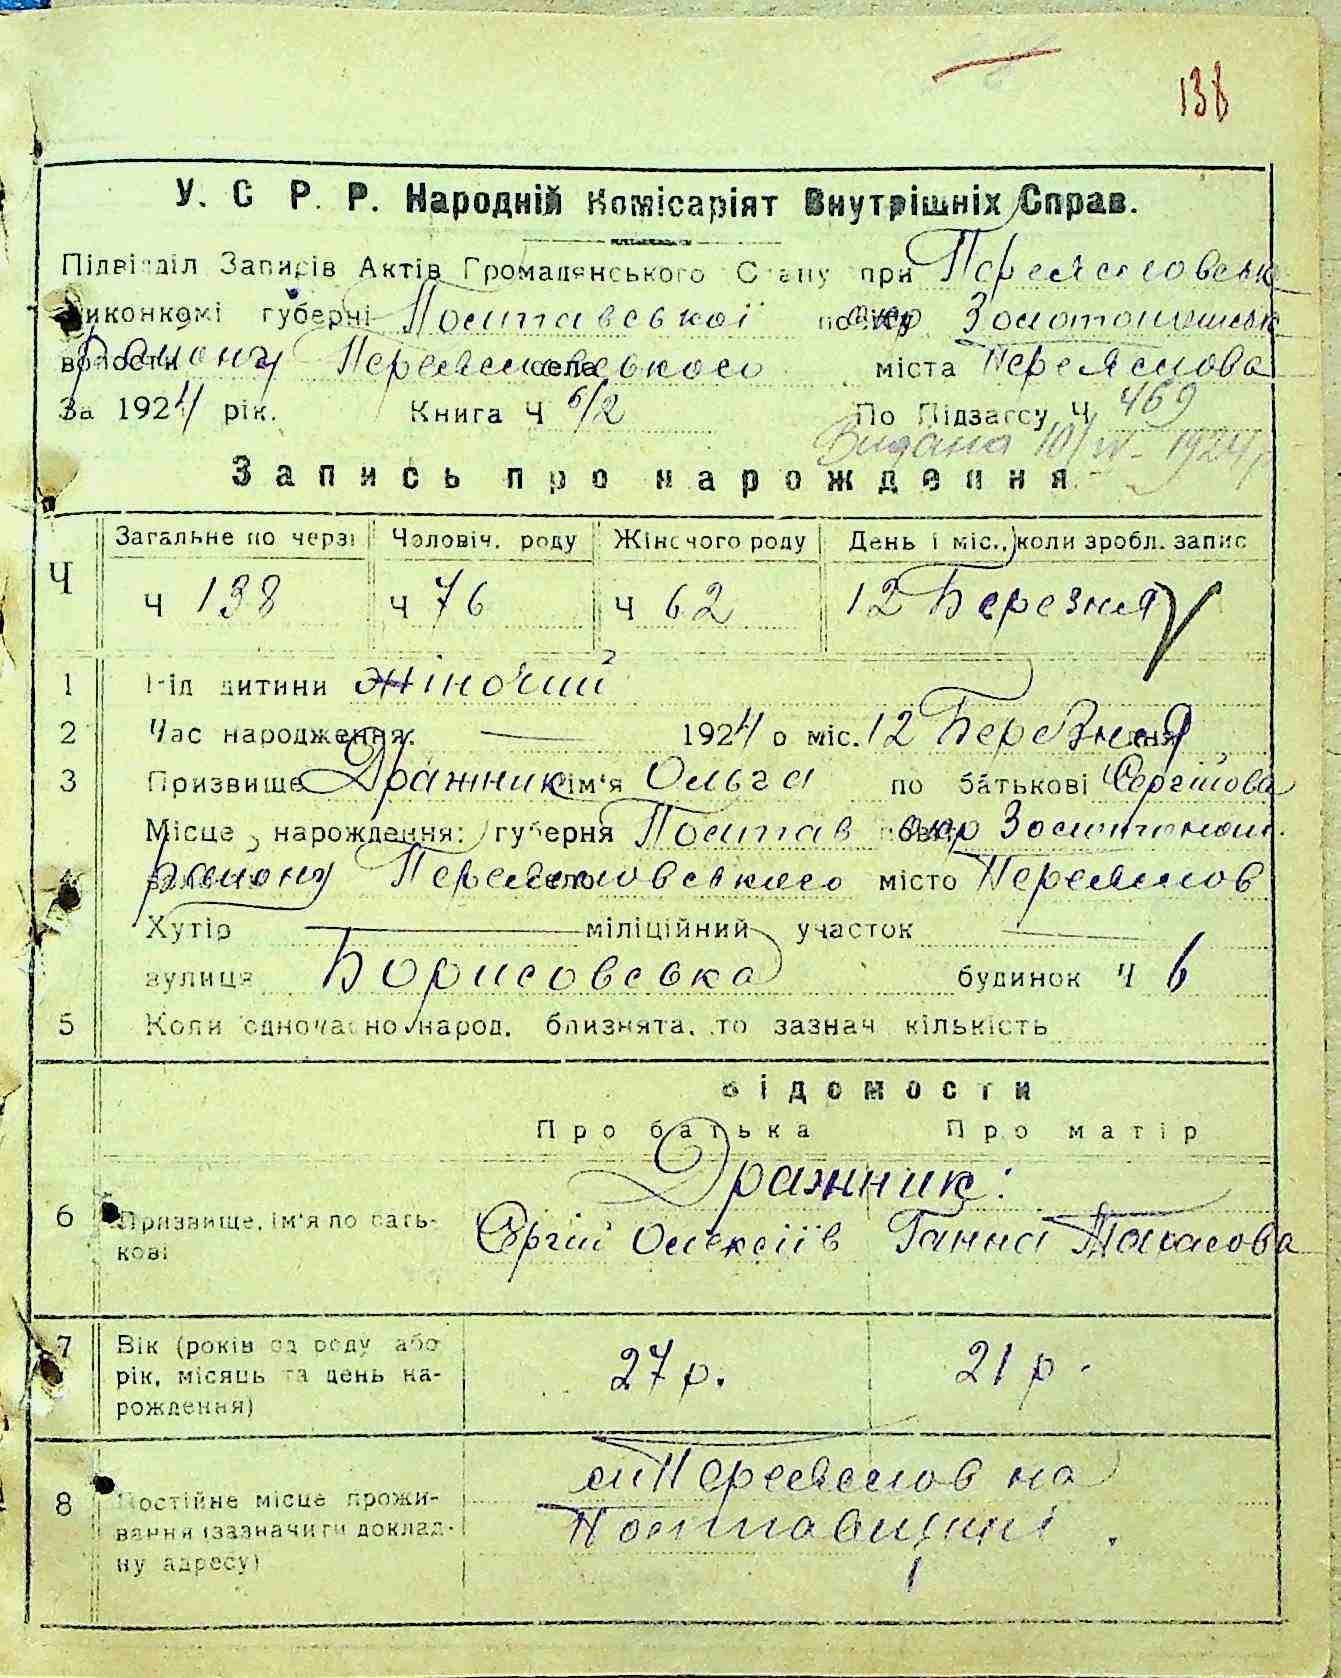 138
У. С. Р. Р. Народній Комісаріят Внутрішніх Справ.
Підвідділ Записів Актів Громадянського Стану при Переяславськ
виконкомі губерні Полтавської окр Золотоношськ
району Переяславського міста Переяслова
За 1924 рік. Книга Ч 6/2 По Підзагсу Ч. 469
Видана 10/IV - 1924 р
Запись про нарождення
Ч Загальне по черзі Чоловіч. роду Жіночого роду День і міс., коли зробл. запис
Ч 138 Ч 76 Ч 62 12 Березня
1 Під дитини жіночий
2 Час народження: 1924 о міс. 12 Березня дня
3 Призвище Дражник ім'я Ольга по батькові Сергіїова
Місце нарождення: губерня Полтав окр Золотонош.
4 району Переясловського місто Переяслов
Хутір міліційний участок
вулиця Борисовська будинок Ч 6
5 Коли одночасно народ. близнята, то зазнач кількість
Відомости
Про батька Про матір
Дражник:
6 Призвище, ім'я по бать-
кові
Сергій Олексіїв Ганна
7 Вік (років од роду або
рік, місяць та день на-
рождення)
27 р. 21 р.
8 Постійне місце прожи-
вання (зазначити доклад-
ну адресу)
м Переяслов на
Полтавщині.